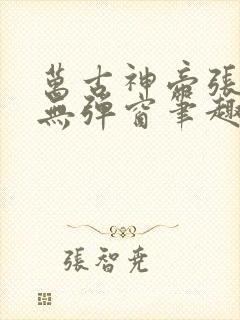 萬古神帝張
無彈窗筆趣
張智堯